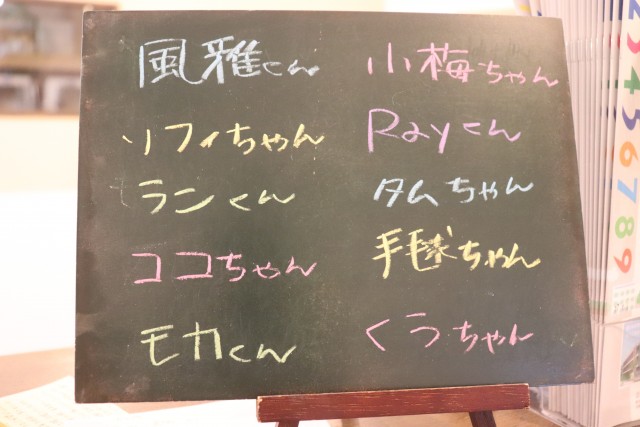 風雅くん
ソフィちゃん
ランくん
ココちゃん
モカくん
小梅ちゃん
Rayくん
タムちゃん
手毬ちゃん
くうちゃん
2
3
4
5
6
7
8
9